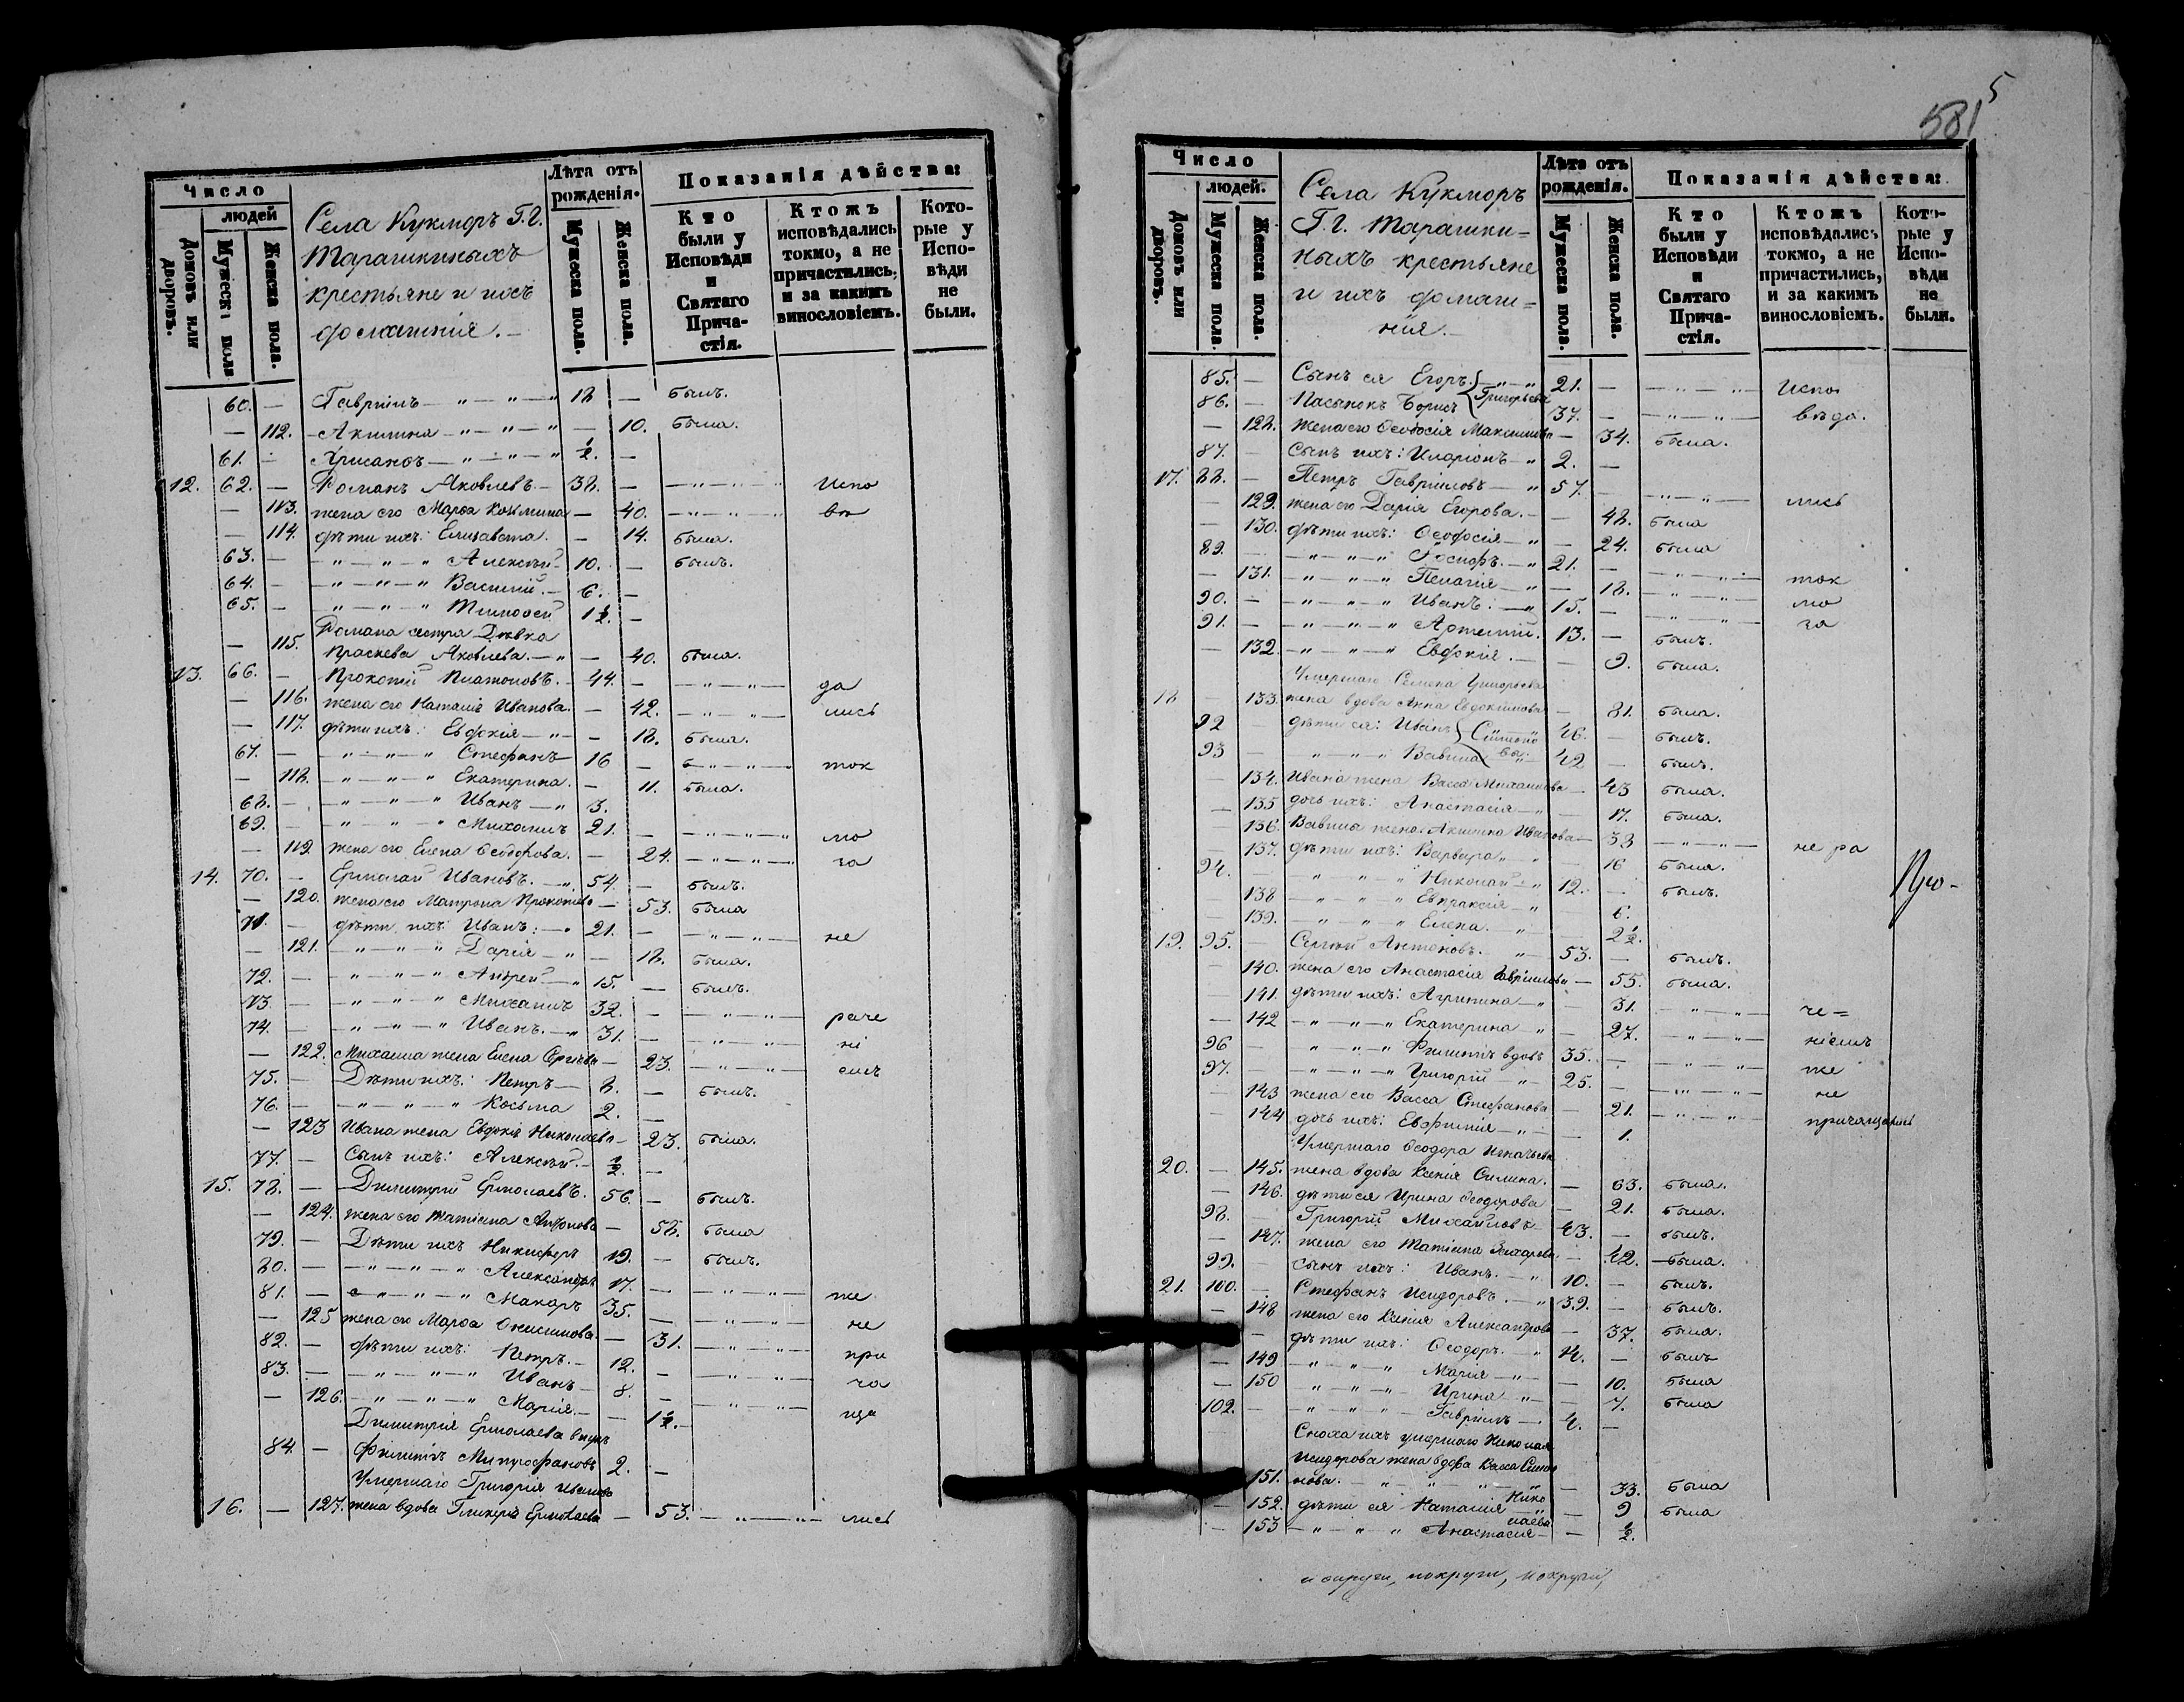 Число
людей
Домовъ или дворовъ.
Мужеска пола
Женска пола.
Села Кукморъ Г. Г.
Тарашкиныхъ
крестьяне и ихъ
домашнія. —
Лѣта отъ рожденія.
Мужеска пола.
Женска пола.
Показанія дѣйства:
Кто были у Исповѣди и Святаго Причастія.
Ктожъ исповѣдались токмо, а не причастились, и за какимъ винословіемъ.
Которые у Исповѣди не были.
60. — Гавріилъ — " — " — " 12 — былъ.
— 112. Акилина — " — " — " — 10. была.
61. — Хрисанѳъ — " — " — " ½. —
12. 62. — Романъ Яковлевъ. — 38. — — " — " Испо
— 113. жена его Марѳа Козьмина — 40. — " — " вѣ
— 114. дѣти ихъ: Елизавета. — 14. была.
63. — — " — " — " Алексѣй 10. — былъ.
64. — — " — " — " Василій. — 6. —
65. — " — " — " Тимоѳей 1½. —
Романа сестра Дѣвка
— 115. Праскева Яковлева. — " — 40. была.
13. 66. — Прокопій Платоновъ. — 44. — — " — " — да
— 116. жена его Наталія Иванова. — 42. — " — " — лись
— 117. дѣти ихъ: Евдокія — " — — 18. была.
67. — " — " — " Стефанъ 16 — — " — " — ток
— 118. — " — " — " Екатерина. — 11. была.
68. — — " — " — " Иванъ — " 3.
69. — " — " — " Михаилъ 21. — — " — " — " мо
— 119. жена его Елена Ѳеодорова. — 24. — " — " — за
14. 70. — Ермолай Ивановъ. — " 54. — былъ.
— 120. жена его Матрона Прокопьева — 53. была
71. — дѣти ихъ: Иванъ: — " 21. — — " — " — не
— 121. — " — " — " Дарія — " — 18. была.
72. — — " — " — " Андрей — " 15. — былъ.
73. — — " — " — " Михаилъ 32. — — " — " — раче
74. — — " — " — " Иванъ. — " 31. — — " — " — ні
— 122. Михаила жена Елена Сергѣева — 23. — " — " — емъ
75. — Дѣти ихъ: Петръ — 8. — былъ.
76. — — " — " — " Косьма 2. —
— 123 Ивана жена Евдокія Николаева — 23. была.
77. — Сынъ ихъ: Алексѣй. — ½. —
15. 78. — Димитрій Ермолаевъ. 56. — былъ.
— 124. жена его Татіана Антонова — 58. была
79. — Дѣти ихъ Никифоръ 19. — былъ.
80. — — " — " — " Александръ 17. — — " — " — же
81. — — " — " — " Макаръ 35. — — " — " — не
— 125 жена его Марѳа Онисимова. — 31. — " — " — при
82. — дѣти ихъ: Петръ. — 12. — — " — " — ча
83. — — " — " — " Иванъ — 8. — — " — " — ща
— 126. — " — " — " Марія. — — 1½. —
Димитрія Ермолаева внукъ
84. — Филиппъ Митрофановъ 2. —
Умершаго Григорія Иванова
16. — 127. жена вдова Гликерія Ермолаева — 53. — " — " — лись
5
581
Число
людей.
Домовъ или дворовъ.
Мужеска пола.
Женска пола.
Села Кукморъ
Г. Г. Тарашки=
ныхъ крестьяне
и ихъ домаш=
нія. —
Лѣта отъ рожденія.
Мужеска пола.
Женска пола.
Показанія дѣйства:
Кто были у Исповѣди и Святаго Причастія.
Ктожъ исповѣдались токмо, а не причастились, и за какимъ винословіемъ.
Которые у Исповѣди не были.
85. — Сынъ ея Егоръ. — " — " 21. — — " — " Испо
86. — Пасынокъ Борисъ Григорьевы 37. — — " — " — вѣда.
— 128. Жена его Ѳеодосія Максимова — 34. была.
87. — Сынъ ихъ: Иларіонъ — " 2. —
17. 88. — Петръ Гавріиловъ — " 57. — — " — " — лись
— 129. жена его Дарія Егорова. — — 48. была
— 130. дѣти ихъ: Ѳеодосія — " — 24. была
89. — — " — " — " Ѳеодоръ. — " 21. — — " — " — ток
— 131. — " — " — " Пелагія — " — 18. — " — " — мо
90. — — " — " — " Иванъ: — " 15. — — " — " — за
91. — — " — " — " Артемій. 13. — былъ.
— 132. — " — " — " Евдокія. — — 9. была.
Умершаго Семена Григорьева
18 — 133. жена вдова Анна Евдокимова — 81. была.
92 — дѣти ея: Иванъ 46. — былъ.
93 — " — " — " Вавила 42 — былъ.
— 134. Ивана жена Васса Михаилова — 43 была.
— 135 дочь ихъ: Анастасія — " — 17. была.
— 136. Вавилы жена Акилина Иванова — 38 — " — " — не ра
— 137. дѣти ихъ: Варвара " " — 16 была.
94. — — " — " — " Николай — " 12. — былъ.
138 — " — " — " Евпраксія — " — 6.
— 139. — " — " — " Елена. — " — 2½.
19. 95. — Сергѣй Антоновъ. — " 53. — былъ.
— 140. жена его Анастасія Гавріилова — 55. была.
— 141. дѣти ихъ: Агрипина — " — 31. — " — " — че=
— 142 — " — " — " Екатерина — " — 27. — " — " — ніемъ
96 — — " — " — " Филиппъ вдовъ 35. — — " — " — же
97. — — " — " — " Григорій — " — 25. — — " — " — не
— 143 жена его Васса Стефанова — 21. — " — " — причащались
— 144 дочь ихъ: Евфимія — " — — 1.
Умершаго Ѳеодора Игнатьева
20. — 145. жена вдова Ксенія Силина. — 63. была.
— 146. дѣти ея Ирина Ѳеодорова — 21. была.
98. — Григорій Михайловъ — 43. — былъ.
— 147. жена его Татіана Захарова. — 42. была.
99. — сынъ ихъ: Иванъ. — " 10. — былъ.
21. 100. — Стефанъ Исидоровъ. — " 39. — былъ.
— 148 жена его Ксенія Александрова — 37. была.
— дѣти ихъ: Ѳеодоръ. — " 14. — былъ
— 149 — " — " — " Марія — " — — 10. была
— 150 — " — " — " Ирина — " — — 7. была
102. — — " — " — " Гавріилъ — 4. —
Сноха ихъ умершаго Николая
Исидорова жена вдова Васса Симо
151. нова. — " — " — " — " — 33. была
— 152. дѣти ея Наталія Нико — 9 была
лаева
— 153 — " — " — " Анастасія — — ½.